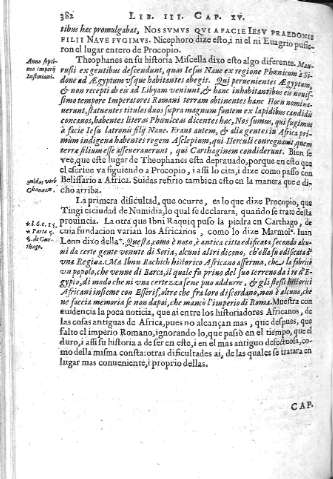 382 LIB. III. CAP. XV.
tibus hec promulgabat, NOS SVMVS QVI A FACIE IESV PRAEDONIS
FILII NAVE FVGIMVS. Nicephoro dize esto, i ni el ni Euagrio pusie-
ron el lugar entero de Procopio.
Theophanes en su historia Miscella dize esto algo diferente. Mau-
rusii ex gentibus descendunt, quas Iesus Naue ex regione Phœnicum à Si-
done ad Ægyptum vsque habitantes abegit. Qui peruenientes Ægyptum,
& non recepti ab eis ad Libyam veniunt, & hanc inhabitantibus eis nouis-
simo tempore Imperatores Romani terram obtinentes hanc
nerunt, statuentes titulos duos supra magnum fontem ex lapidibus candidis
habentes literas Phœniceas dicentes hac, Nos sumus, qui fugimus
à facie Iesu latronis filij Naue. Erant autem, & aliæ gentes in Africa pri-
mùm indigena habentes regem Asclepium, qui Herculi
terræ filium esse asseuerauerunt, qui Carthaginem condiderunt. Bien se
vee, que este lugar de Theophanes esta deprauado, porque en esto con
el escriuio va siguiendo a Procopio, i assi lo cita, i dize como passò con
Belissario a Africa. Suidas refirio tambien esto en la manera que e di-
cho arriba.
La primera dificultad, que ocurre, es lo que dize Procopio, que
Tingi es ciudad de Numidia, lo qual se declarara, quando se trate desta
prouincia. La otra que Ibni Raquiq puso la piedra en Carthago, de
cuia fundacion varian los Africanos, como lo dize Marmol. Iuan
Leon dixo della. Questa, come è noto, è antica città edificata secondo alcu-
ni da certe gente venute di Soria, alcuni altri dicono, ch'ella fu edificata d'
vna Regina. Ma Ibnu Rachich historico Africano afferma, che la fabricò
vn popolo, che venne di Barca, il quale fu prino del suo terreno da i re d'E-
gypto, di modo che ni vna certezza se ne puo addurre, & gli stessi historici
Africani insieme con Esserif, oltre che fra loro discordano, non è alcuno, che
ne faccia memoria se non dapoi, che mancò l'imperio di Roma. Muestra con
euidencia la poca noticia, que ai entre los historiadores Africanos, de
las cosas antiguas de Africa, pues no alcançan mas, que despues, que
falto el imperio Romano, ignorando lo, que pasò en el tiempo, que el
duro, i assi su historia a de ser en esto, i en el mas antiguo defectuosa, co-
mo della misma consta: otras dificultades ai, de las quales se tratara en
lugar mas conueniente, i proprio dellas.
CAP.